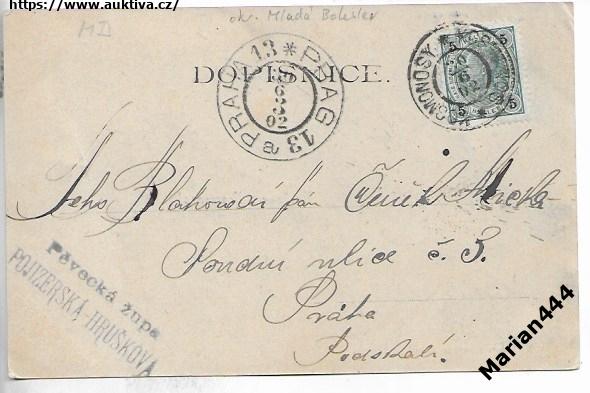 https://www.auktiva.cz/
okr. Mladá Boleslav
MD
DOPISNICE.
PRAHA 13 * PRAG 13 a
02
KOSMONOSY
02
5 5
5 5
Jeho Blahorodí pán Čeněk
Sondní ulice č. 3.
Práha
Podskalí.
Pěvecká župa
POJIZERSKÁ HRUŠKOVA
Marian444